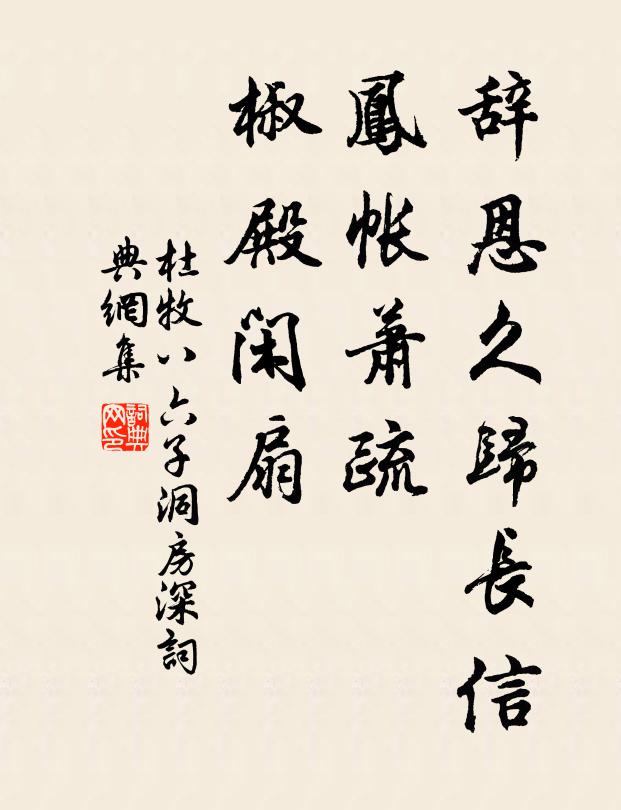 辞恩久歸長信
鳳帐蕭疏
椒殿闲扇
杜牧八六子洞房深詞
典網集
詞典网印